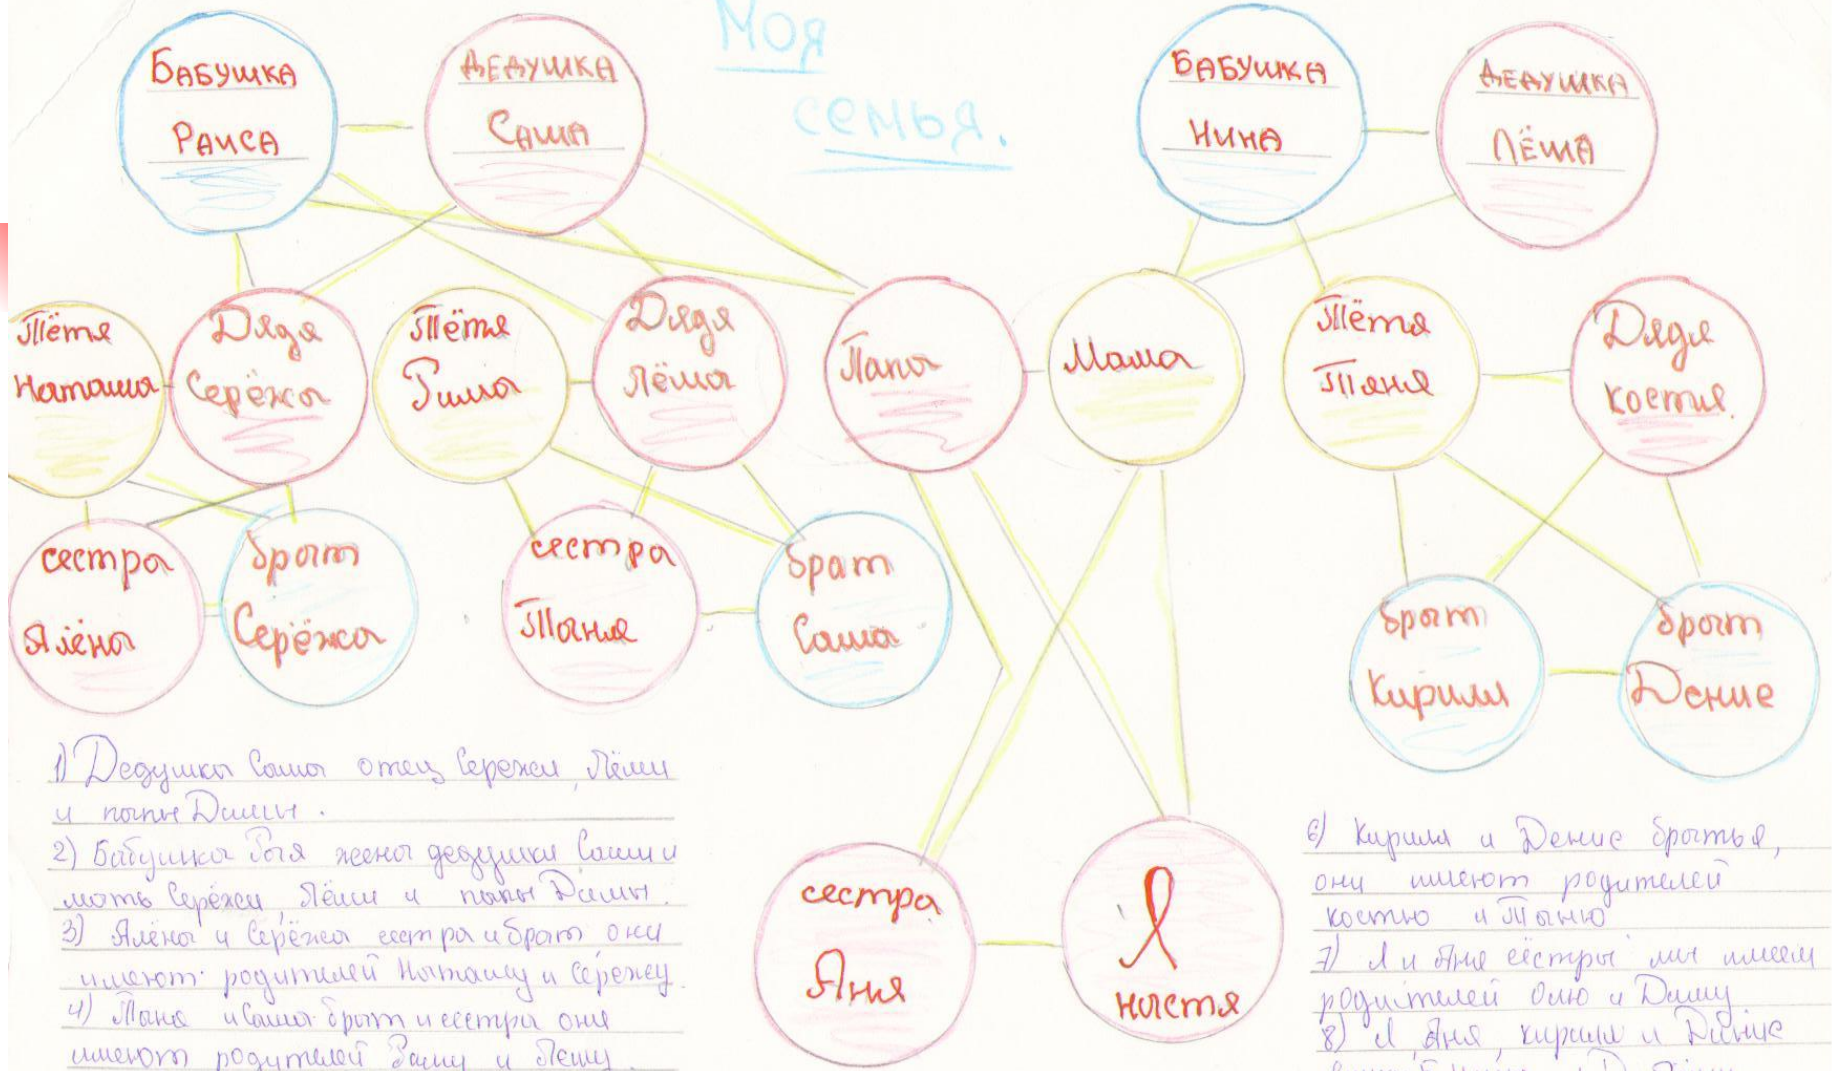 Моя
семья.
БАБУШКА
РАИСА
ДЕДУШКА
САША
БАБУШКА
НИНА
ДЕДУШКА
ЛЁША
Тётя
Наташа
Дядя
Серёжа
Тётя
Римма
Дядя
Лёша
Папа
Мама
Тётя
Таня
Дядя
Костя.
сестра
Алёна
брат
Серёжа
сестра
Таня
брат
Саша
брат
Кирилл
брат
Денис
сестра
Аня
Я
настя
1) Дедушка Саша отец Сережи, Лёши
и папы Димы.
2) Бабушка Рая жена дедушки Саши и
мать Серёжи, Лёши и папы Димы.
3) Алёна и Серёжа сестра и брат они
имеют родителей Наташу и Сережу.
4) Таня и Саша брат и сестра они
имеют родителей и Лешу.
6) Кирилл и Денис братья,
они имеют родителей
костю и Таню
7) Я и Аня сёстры мы имеем
родителей Олю и Диму
8) Я, Аня, кирилл и Денис